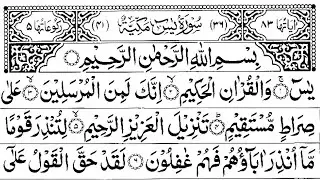 اٰیَاتُهَا ٨٣ (٣٦) سُوْرَةُ یٰسٓ مَكِّیَّةٌ (٤١) رُكُوْعَاتُهَا ٥
بِسْمِ اللّٰهِ الرَّحْمٰنِ الرَّحِیْمِ
یٰسٓ ۚ وَالْقُرْاٰنِ الْحَكِیْمِ ۙ اِنَّكَ لَمِنَ الْمُرْسَلِیْنَ ۙ عَلٰی
صِرَاطٍ مُّسْتَقِیْمٍ ؕ تَنْزِیْلَ الْعَزِیْزِ الرَّحِیْمِ ۙ لِتُنْذِرَ قَوْمًا
مَّاۤ اُنْذِرَ اٰبَآؤُهُمْ فَهُمْ غٰفِلُوْنَ لَقَدْ حَقَّ الْقَوْلُ عَلٰۤی